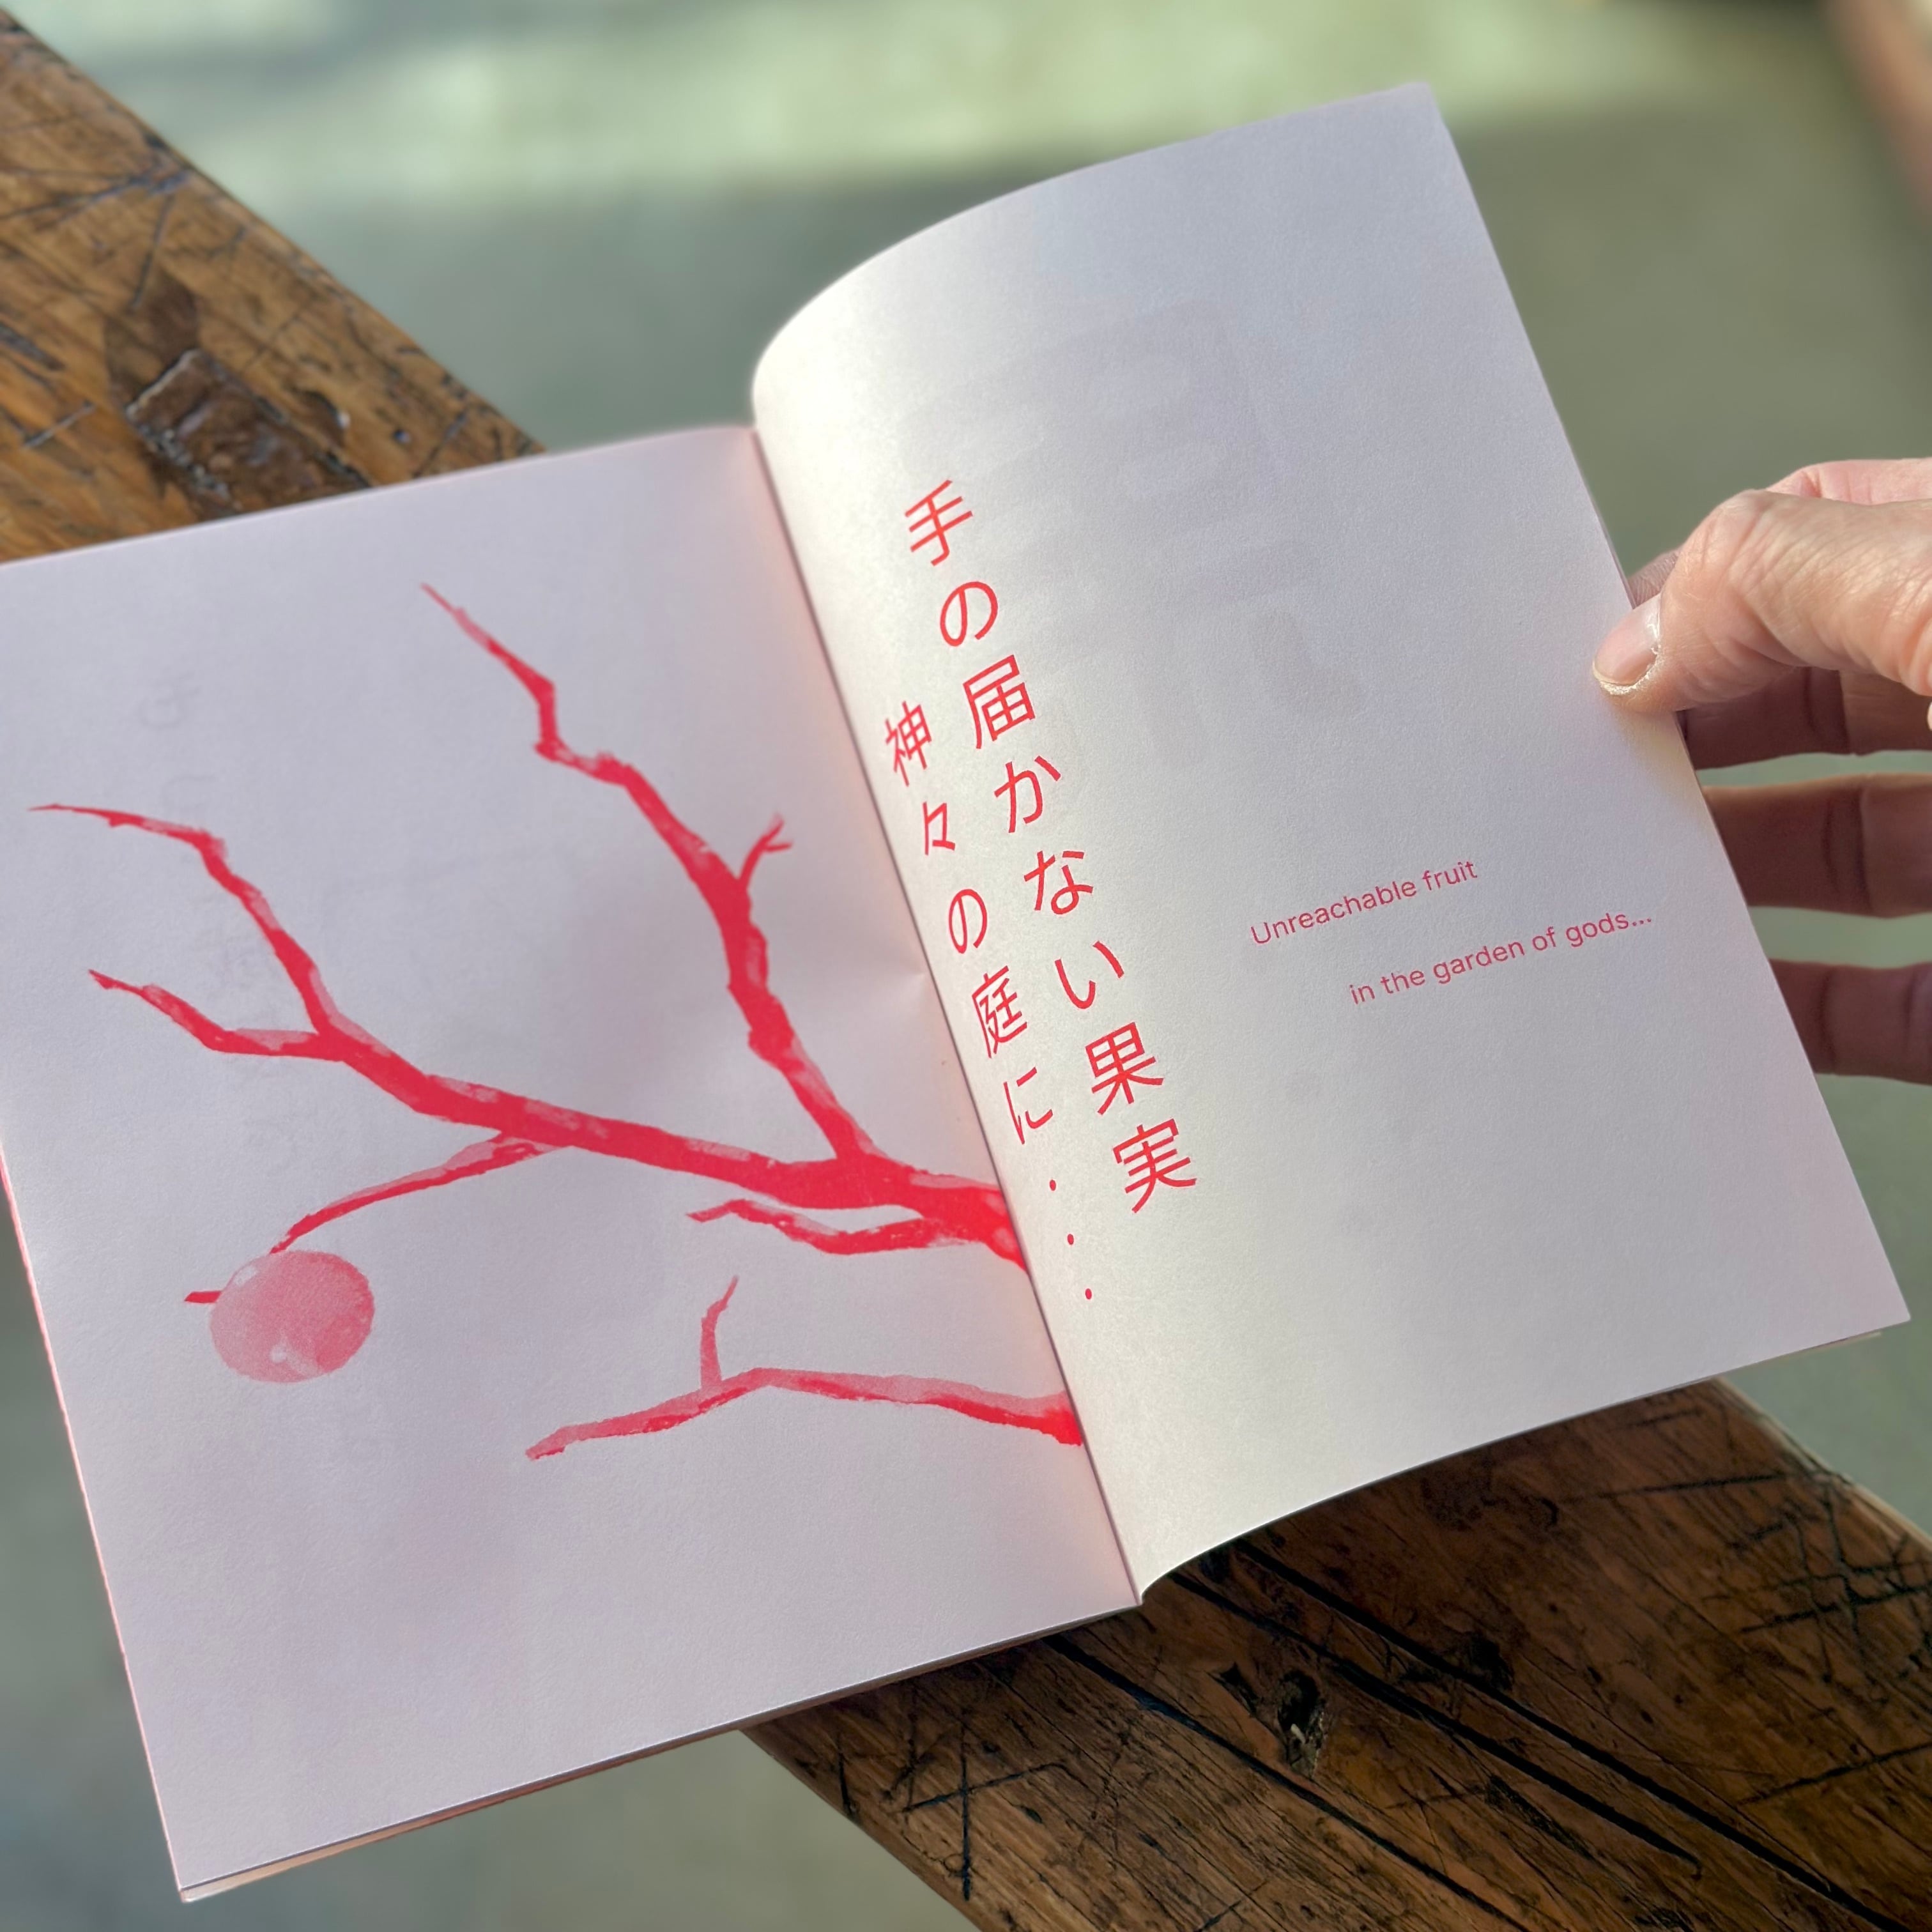 手の届かない果実
神々の庭に・・・
Unreachable fruit
in the garden of gods...